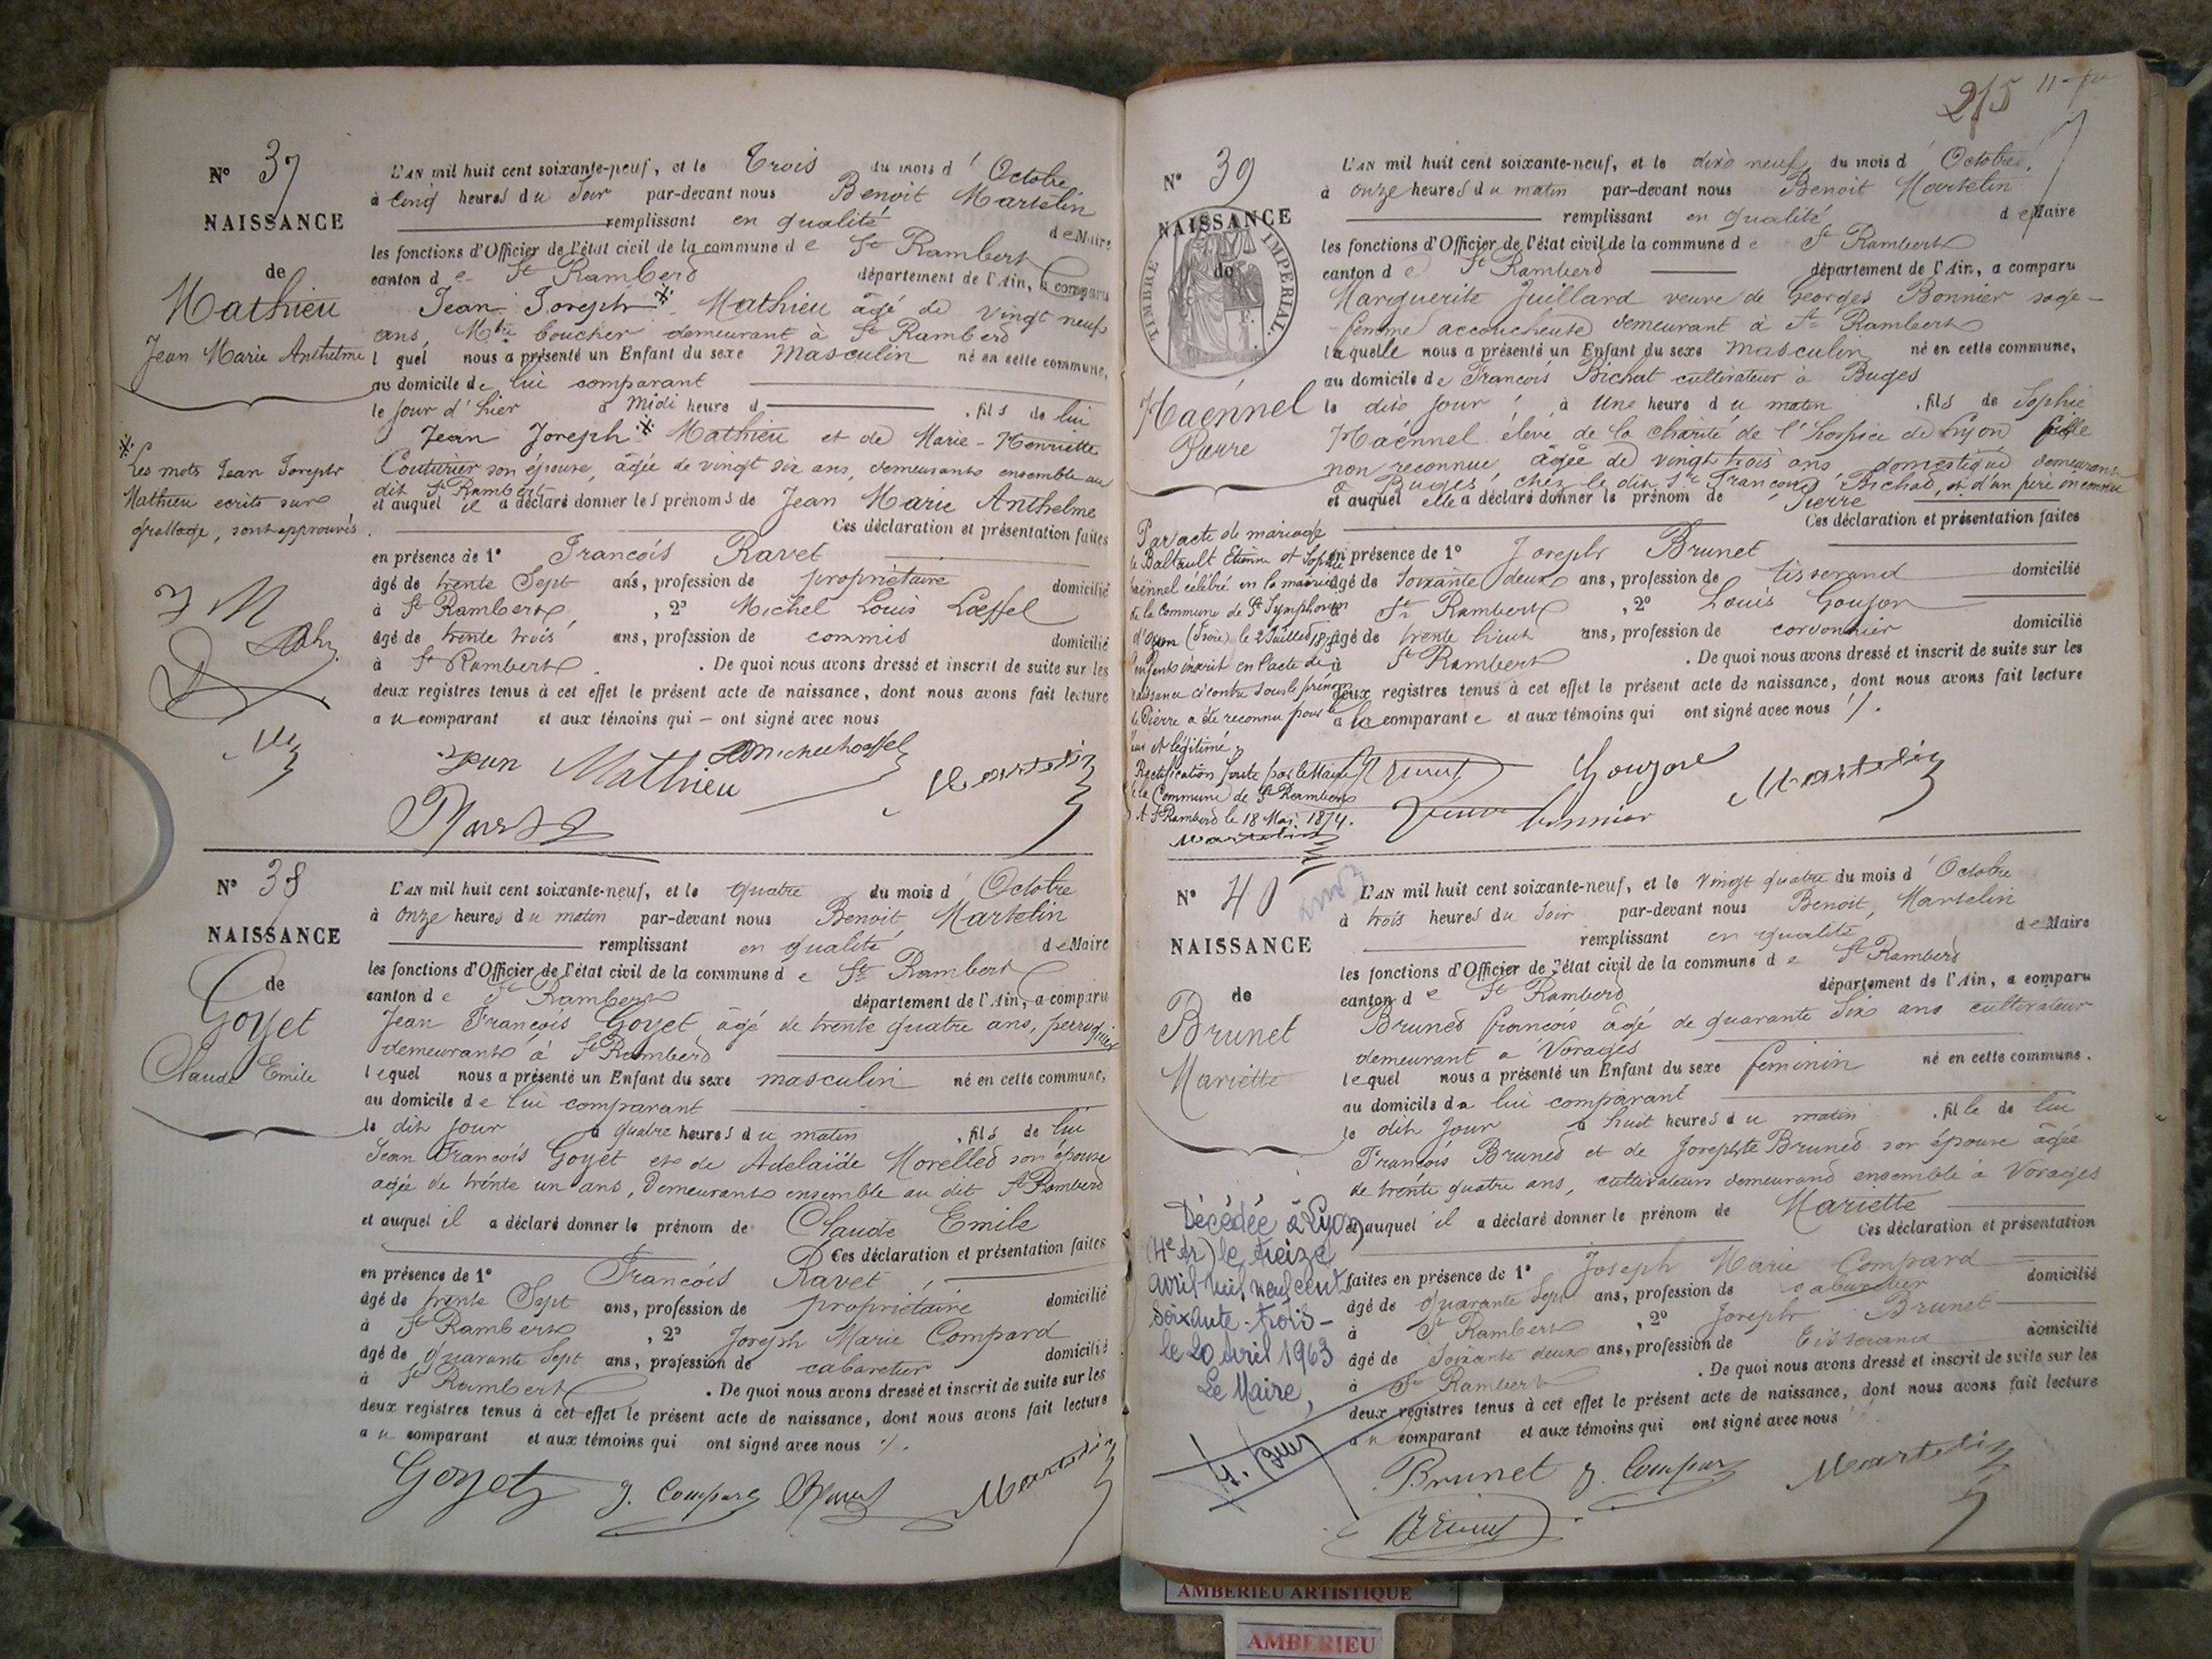 N° 37
NAISSANCE
de
Mathieu
Jean Marie Anthelme
L'AN mil huit cent soixante-neuf, et le Trois du mois d' Octobre
à Cinq heures du Soir par-devant nous Benoit Martelin
remplissant en qualité de Maire
les fonctions d'Officier de l'état civil de la commune de St Rambert
canton de St Rambert département de l'Ain, a comparu
Jean Joseph * Mathieu âgé de vingt neuf
ans, Mtre boucher demeurant à St Rambert
lequel nous a présenté un Enfant du sexe Masculin né en cette commune,
au domicile de lui comparant
le jour d'hier à Midi heure d , fils de lui
Jean Joseph * Mathieu et de Marie-Henriette
Couturier son épouse, âgée de vingt six ans, demeurants ensemble au
dit St Rambert
et auquel il a déclaré donner les prénoms de Jean Marie Anthelme
Ces déclaration et présentation faites
en présence de 1° Francois Ravet
âgé de trente Sept ans, profession de propriétaire domicilié
à St Rambert, 2° Michel Louis Lœffel
âgé de trente trois ans, profession de commis domicilié
à St Rambert. De quoi nous avons dressé et inscrit de suite sur les
deux registres tenus à cet effet le présent acte de naissance, dont nous avons fait lecture
au comparant et aux témoins qui ont signé avec nous
* Les mots Jean Joseph
Mathieu ecrits sur
grattage, sont approuvés.
J M
Jean Mathieu
Martelin
N° 38
NAISSANCE
de
Goyet
Claude Emile
L'AN mil huit cent soixante-neuf, et le quatre du mois d' Octobre
à onze heures du matin par-devant nous Benoit Martelin
remplissant en qualité de Maire
les fonctions d'Officier de l'état civil de la commune de St Rambert
canton de St Rambert département de l'Ain, a comparu
Jean François Goyet âgé de trente quatre ans, perruquier
demeurant à St Rambert
lequel nous a présenté un Enfant du sexe masculin né en cette commune,
au domicile de lui comparant
le dit jour à quatre heures du matin, fils de lui
Jean Francois Goyet et de Adelaïde Morellet son épouse
agée de trente un ans, demeurants ensemble au dit St Rambert
et auquel il a déclaré donner le prénom de Claude Emile
Ces déclaration et présentation faites
en présence de 1° Francois Ravet
âgé de trente Sept ans, profession de propriétaire domicilié
à St Rambert, 2° Joseph Marie Compard
âgé de quarante Sept ans, profession de cabaretier domicilié
à St Rambert. De quoi nous avons dressé et inscrit de suite sur les
deux registres tenus à cet effet le présent acte de naissance, dont nous avons fait lecture
au comparant et aux témoins qui ont signé avec nous
Goyet J. Compard Martelin
215
N° 39
NAISSANCE
de
TIMBRE IMPÉRIAL.
Haënnel
Pierre
L'AN mil huit cent soixante-neuf, et le dix neuf du mois d' Octobre
à onze heures du matin par-devant nous Benoit Martelin
remplissant en qualité de Maire
les fonctions d'Officier de l'état civil de la commune de St Rambert
canton de St Rambert département de l'Ain, a comparu
Marguerite Juillard veuve de Georges Bonnier sage-
femme accoucheuse demeurant à St Rambert
laquelle nous a présenté un Enfant du sexe masculin né en cette commune,
au domicile de Francois Bichat cultivateur à Buges
le dit jour, à Une heure du matin, fils de Sophie
Haënnel élevé de la charité de l'hospice de Lyon fille
non reconnue, âgée de vingt trois ans, domestique demeurant
à Buges, chez le dit Sr Francois Bichat, et d'un père inconnu
et auquel elle a déclaré donner le prénom de Pierre
Ces déclaration et présentation faites
en présence de 1° Joseph Brunet
âgé de soixante deux ans, profession de tisserand domicilié
à St Rambert, 2° Louis Goujon
âgé de trente huit ans, profession de cordonnier domicilié
à St Rambert. De quoi nous avons dressé et inscrit de suite sur les
deux registres tenus à cet effet le présent acte de naissance, dont nous avons fait lecture
à la comparante et aux témoins qui ont signé avec nous
Par acte de mariage
de Baltault Etienne et Sophie
Haënnel célébré en la mairie
de la Commune de St Symphorien
d'Ozon (Isère) le 2 Juillet
l'enfant inscrit en l'acte de
naissance ci contre sous le prénom
de Pierre a été reconnu pour
et légitimé.
Rectification faite par le Maire
de la Commune de St Rambert
A St Rambert le 18 Mai 1874.
Martelin
Brunet Goujon Martelin
Veuve bonnier
N° 40
NAISSANCE
de
Brunet
Mariette
L'AN mil huit cent soixante-neuf, et le vingt quatre du mois d' Octobre
à trois heures du Soir par-devant nous Benoit Martelin
remplissant en qualité de Maire
les fonctions d'Officier de l'état civil de la commune de St Rambert
canton de St Rambert département de l'Ain, a comparu
Brunet francois âgé de quarante Six ans cultivateur
demeurant a Vorages
lequel nous a présenté un Enfant du sexe feminin né en cette commune.
au domicile de lui comparant
le dit jour à huit heures du matin, fille de lui
Francois Brunet et de Josephte Brunet son épouse âgée
de trente quatre ans, cultivateurs demeurant ensemble à Vorages
et auquel il a déclaré donner le prénom de Mariette
Ces déclaration et présentation
faites en présence de 1° Joseph Marie Compard
âgé de quarante Sept ans, profession de cabaretier domicilié
à St Rambert, 2° Joseph Brunet
âgé de Soixante deux ans, profession de tisserand domicilié
à St Rambert. De quoi nous avons dressé et inscrit de suite sur les
deux registres tenus à cet effet le présent acte de naissance, dont nous avons fait lecture
au comparant et aux témoins qui ont signé avec nous
Décédée à Lyon
(4e Ar) le treize
avril mil neuf cent
soixante-trois-
le 20 Avril 1963
Le Maire,
Brunet J. Compard Martelin
Brunet
AMBERIEU ARTISTIQUE
AMBERIEU